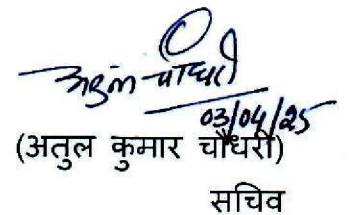 अतुल चौधरी
03/04/25
(अतुल कुमार चौधरी)
सचिव